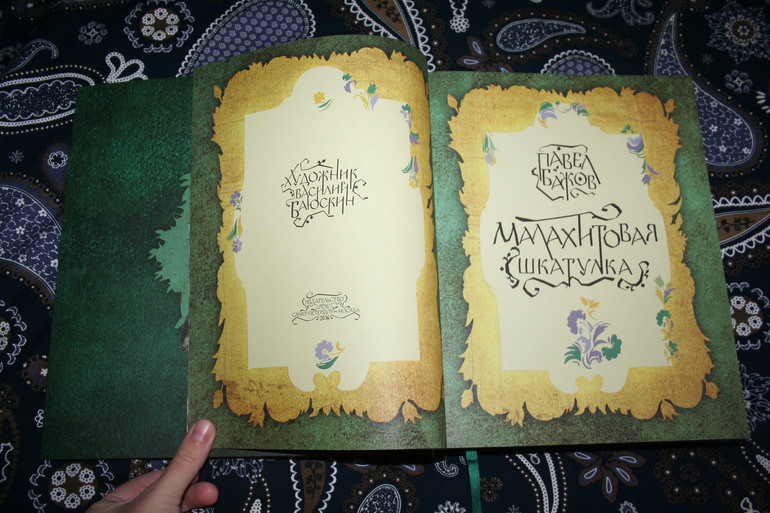 ХУДОЖНИК
ВАСИЛИЙ
БАЮСКИН
ИЗДАТЕЛЬСТВО
РЕЧЬ
САНКТ-ПЕТЕРБУРГ–МОСКВА
ПАВЕЛ
БАЖОВ
МАЛАХИТОВАЯ
ШКАТУЛКА